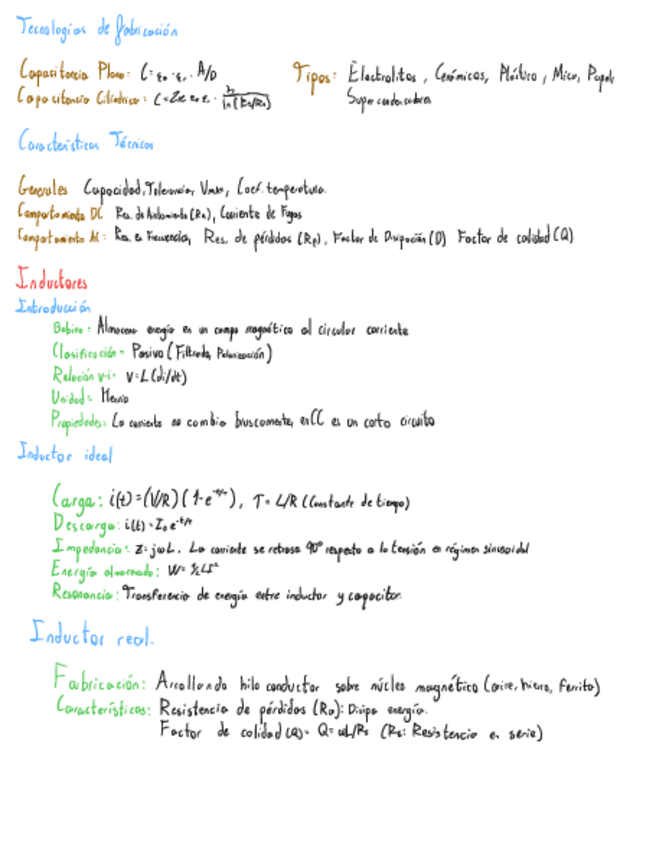 Tecnologías de fabricación
Capacitancia Plana: C = ε₀ · εᵣ · A/D
Tipos: Electrolitos, Cerámicos, Plástico, Mica, Papel,
Supercondensadores
Capacitancia Cilíndrica: C = 2π ε₀ εᵣ · h / ln(
Características Técnicas
Generales Capacidad, Tolerancia, Vmax, Coef. temperatura.
Comportamiento DC Res. de Aislamiento (Ra), Corriente de Fugas
Comportamiento AC: Res. en Frecuencia, Res. de pérdidas (Rp), Factor de Disipación (D) Factor de calidad (Q)
Inductores
Introducción
Bobina: Almacena energía en un campo magnético al circular corriente
Clasificación: Pasivo (Filtrado, Polarización)
Relación v-i: V = L (di/dt)
Unidad: Henrio
Propiedades: La corriente no cambia bruscamente, en CC es un corto circuito
Inductor ideal
Carga: i(t) = (V/R) (1-e^-t/τ), τ = L/R (Constante de tiempo)
Descarga: i(t) = I₀ e^-t/τ
Impedancia: Z = jωL. La corriente se retrasa 90° respecto a la tensión en régimen sinusoidal
Energía almacenada: W = ½LI²
Resonancia: Transferencia de energía entre inductor y capacitor.
Inductor real.
Fabricación: Arrollando hilo conductor sobre núcleo magnético (aire, hierro, ferrita)
Características: Resistencia de pérdidas: Disipa energía.
Factor de calidad (Q) = Q = ωL/Rs (Rs: Resistencia en serie)